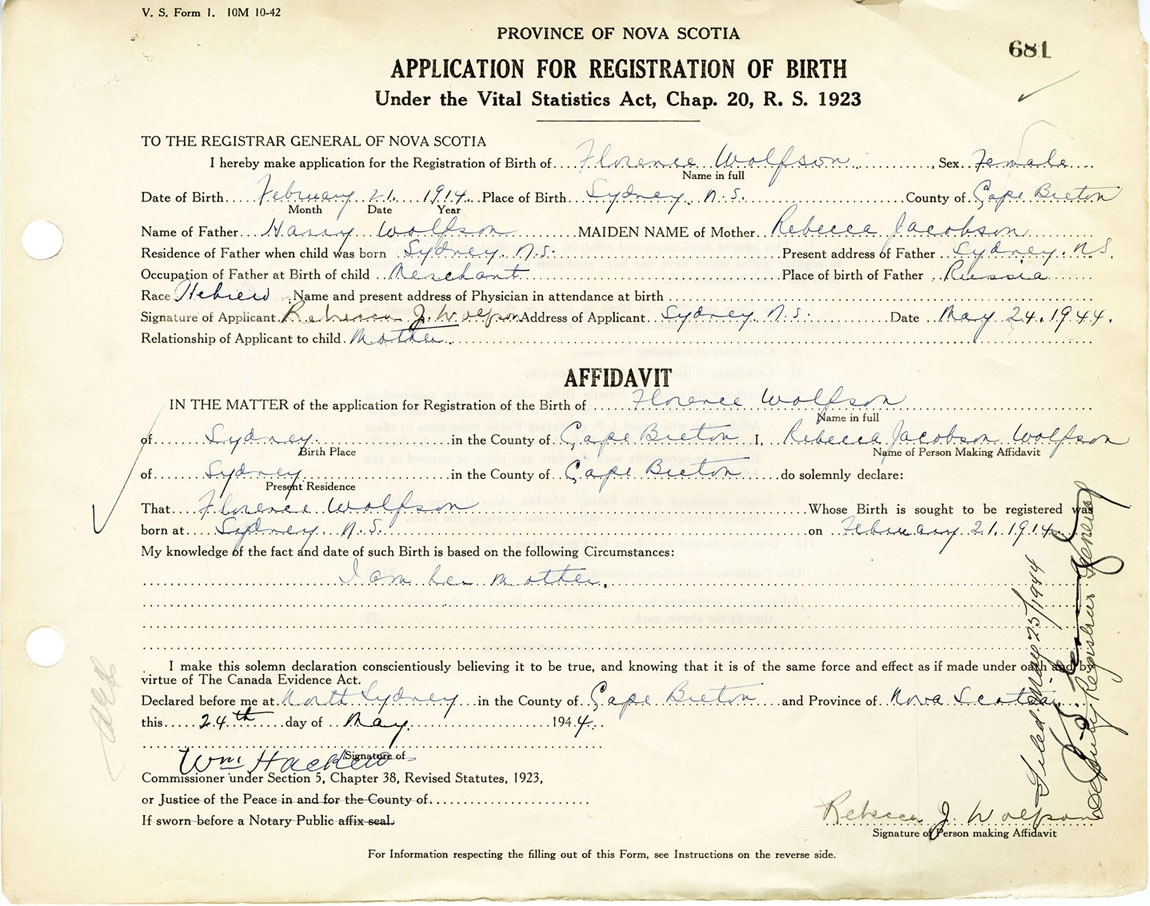 V. S. Form 1. 10M 10-42
PROVINCE OF NOVA SCOTIA
681
APPLICATION FOR REGISTRATION OF BIRTH
Under the Vital Statistics Act, Chap. 20, R. S. 1923
TO THE REGISTRAR GENERAL OF NOVA SCOTIA
I hereby make application for the Registration of Birth of Florence Wolfson, Sex Female
Name in full
Date of Birth February 21. 1914. Place of Birth Sydney N.S. County of Cape Breton
Month Date Year
Name of Father Harry Wolfson MAIDEN NAME of Mother Rebecca Jacobson
Residence of Father when child was born Sydney N.S. Present address of Father Sydney NS.
Occupation of Father at Birth of child Merchant Place of birth of Father Russia
Race Hebrew Name and present address of Physician in attendance at birth
Signature of Applicant Rebecca J. Wolfson Address of Applicant Sydney N.S. Date May 24. 1944.
Relationship of Applicant to child Mother.
AFFIDAVIT
IN THE MATTER of the application for Registration of the Birth of Florence Wolfson
Name in full
of Sydney in the County of Cape Breton I, Rebecca Jacobson Wolfson
Birth Place Name of Person Making Affidavit
of Sydney in the County of Cape Breton do solemnly declare:
Present Residence
That Florence Wolfson Whose Birth is sought to be registered was
born at Sydney N.S. on February 21. 1914
My knowledge of the fact and date of such Birth is based on the following Circumstances:
I am her mother.
I make this solemn declaration conscientiously believing it to be true, and knowing that it is of the same force and effect as if made under oath and by
virtue of The Canada Evidence Act.
Declared before me at North Sydney in the County of Cape Breton and Province of Nova Scotia
this 24th day of May 1944.
Signature of
Wm Hackett
Commissioner under Section 5, Chapter 38, Revised Statutes, 1923,
or Justice of the Peace in and for the County of
If sworn before a Notary Public affix seal.
Rebecca J. Wolfson
Signature of Person making Affidavit
For Information respecting the filling out of this Form, see Instructions on the reverse side.
Filed May 25/1944
Deputy Registrar General